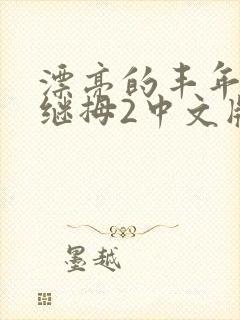 漂亮的丰年
继拇2中文版
墨越